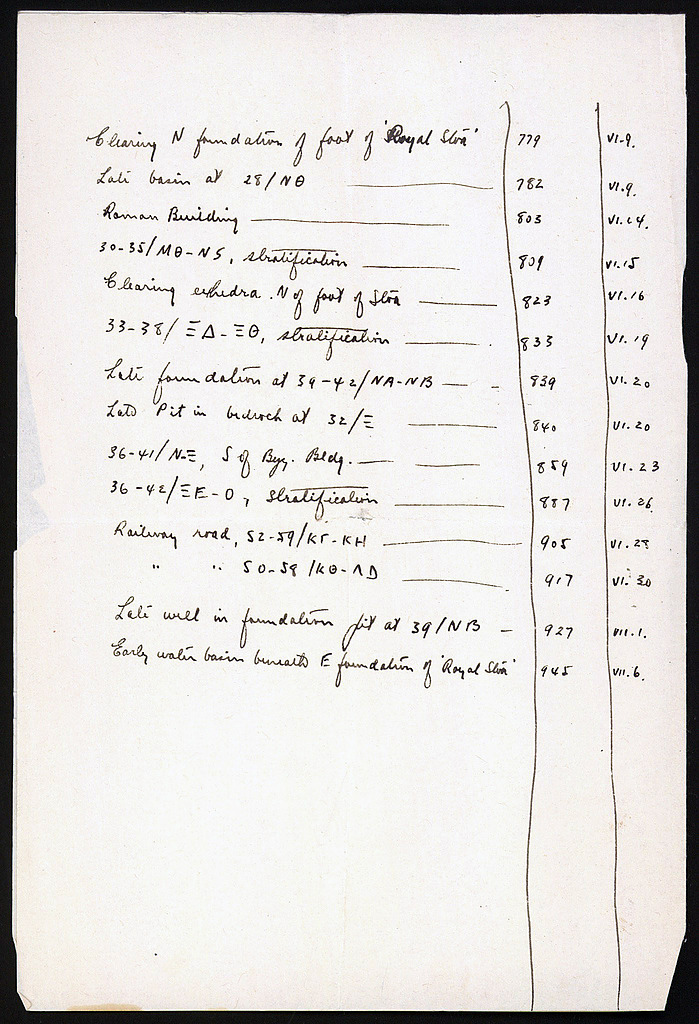 Clearing N foundation of foot of 'Royal Stoa' 779 VI.9.
Late basin at 28/ΝΘ 782 VI.9.
Roman Building 803 VI.14.
30-35/ΜΘ-ΝS, stratification 809 VI.15
Clearing exhedra N of foot of Stoa 823 VI.16
33-38/ΞΔ-ΞΘ, stratification 833 VI.19
Late foundation at 39-42/ΝΑ-ΝΒ 839 VI.20
Late Pit in bedrock at 32/Ξ 840 VI.20
36-41/Ν-Ξ, S of Byz. Bldg. 859 VI.23
36-42/ΞΕ-Ο, stratification 887 VI.26.
Railway road, 52-59/ΚΓ-ΚΗ 905 VI.28
" " 50-58/ΚΘ-ΛΔ 917 VI.30
Late well in foundation pit at 39/ΝΒ 927 VII.1.
Early water basin beneath E foundation of 'Royal Stoa' 945 VII.6.